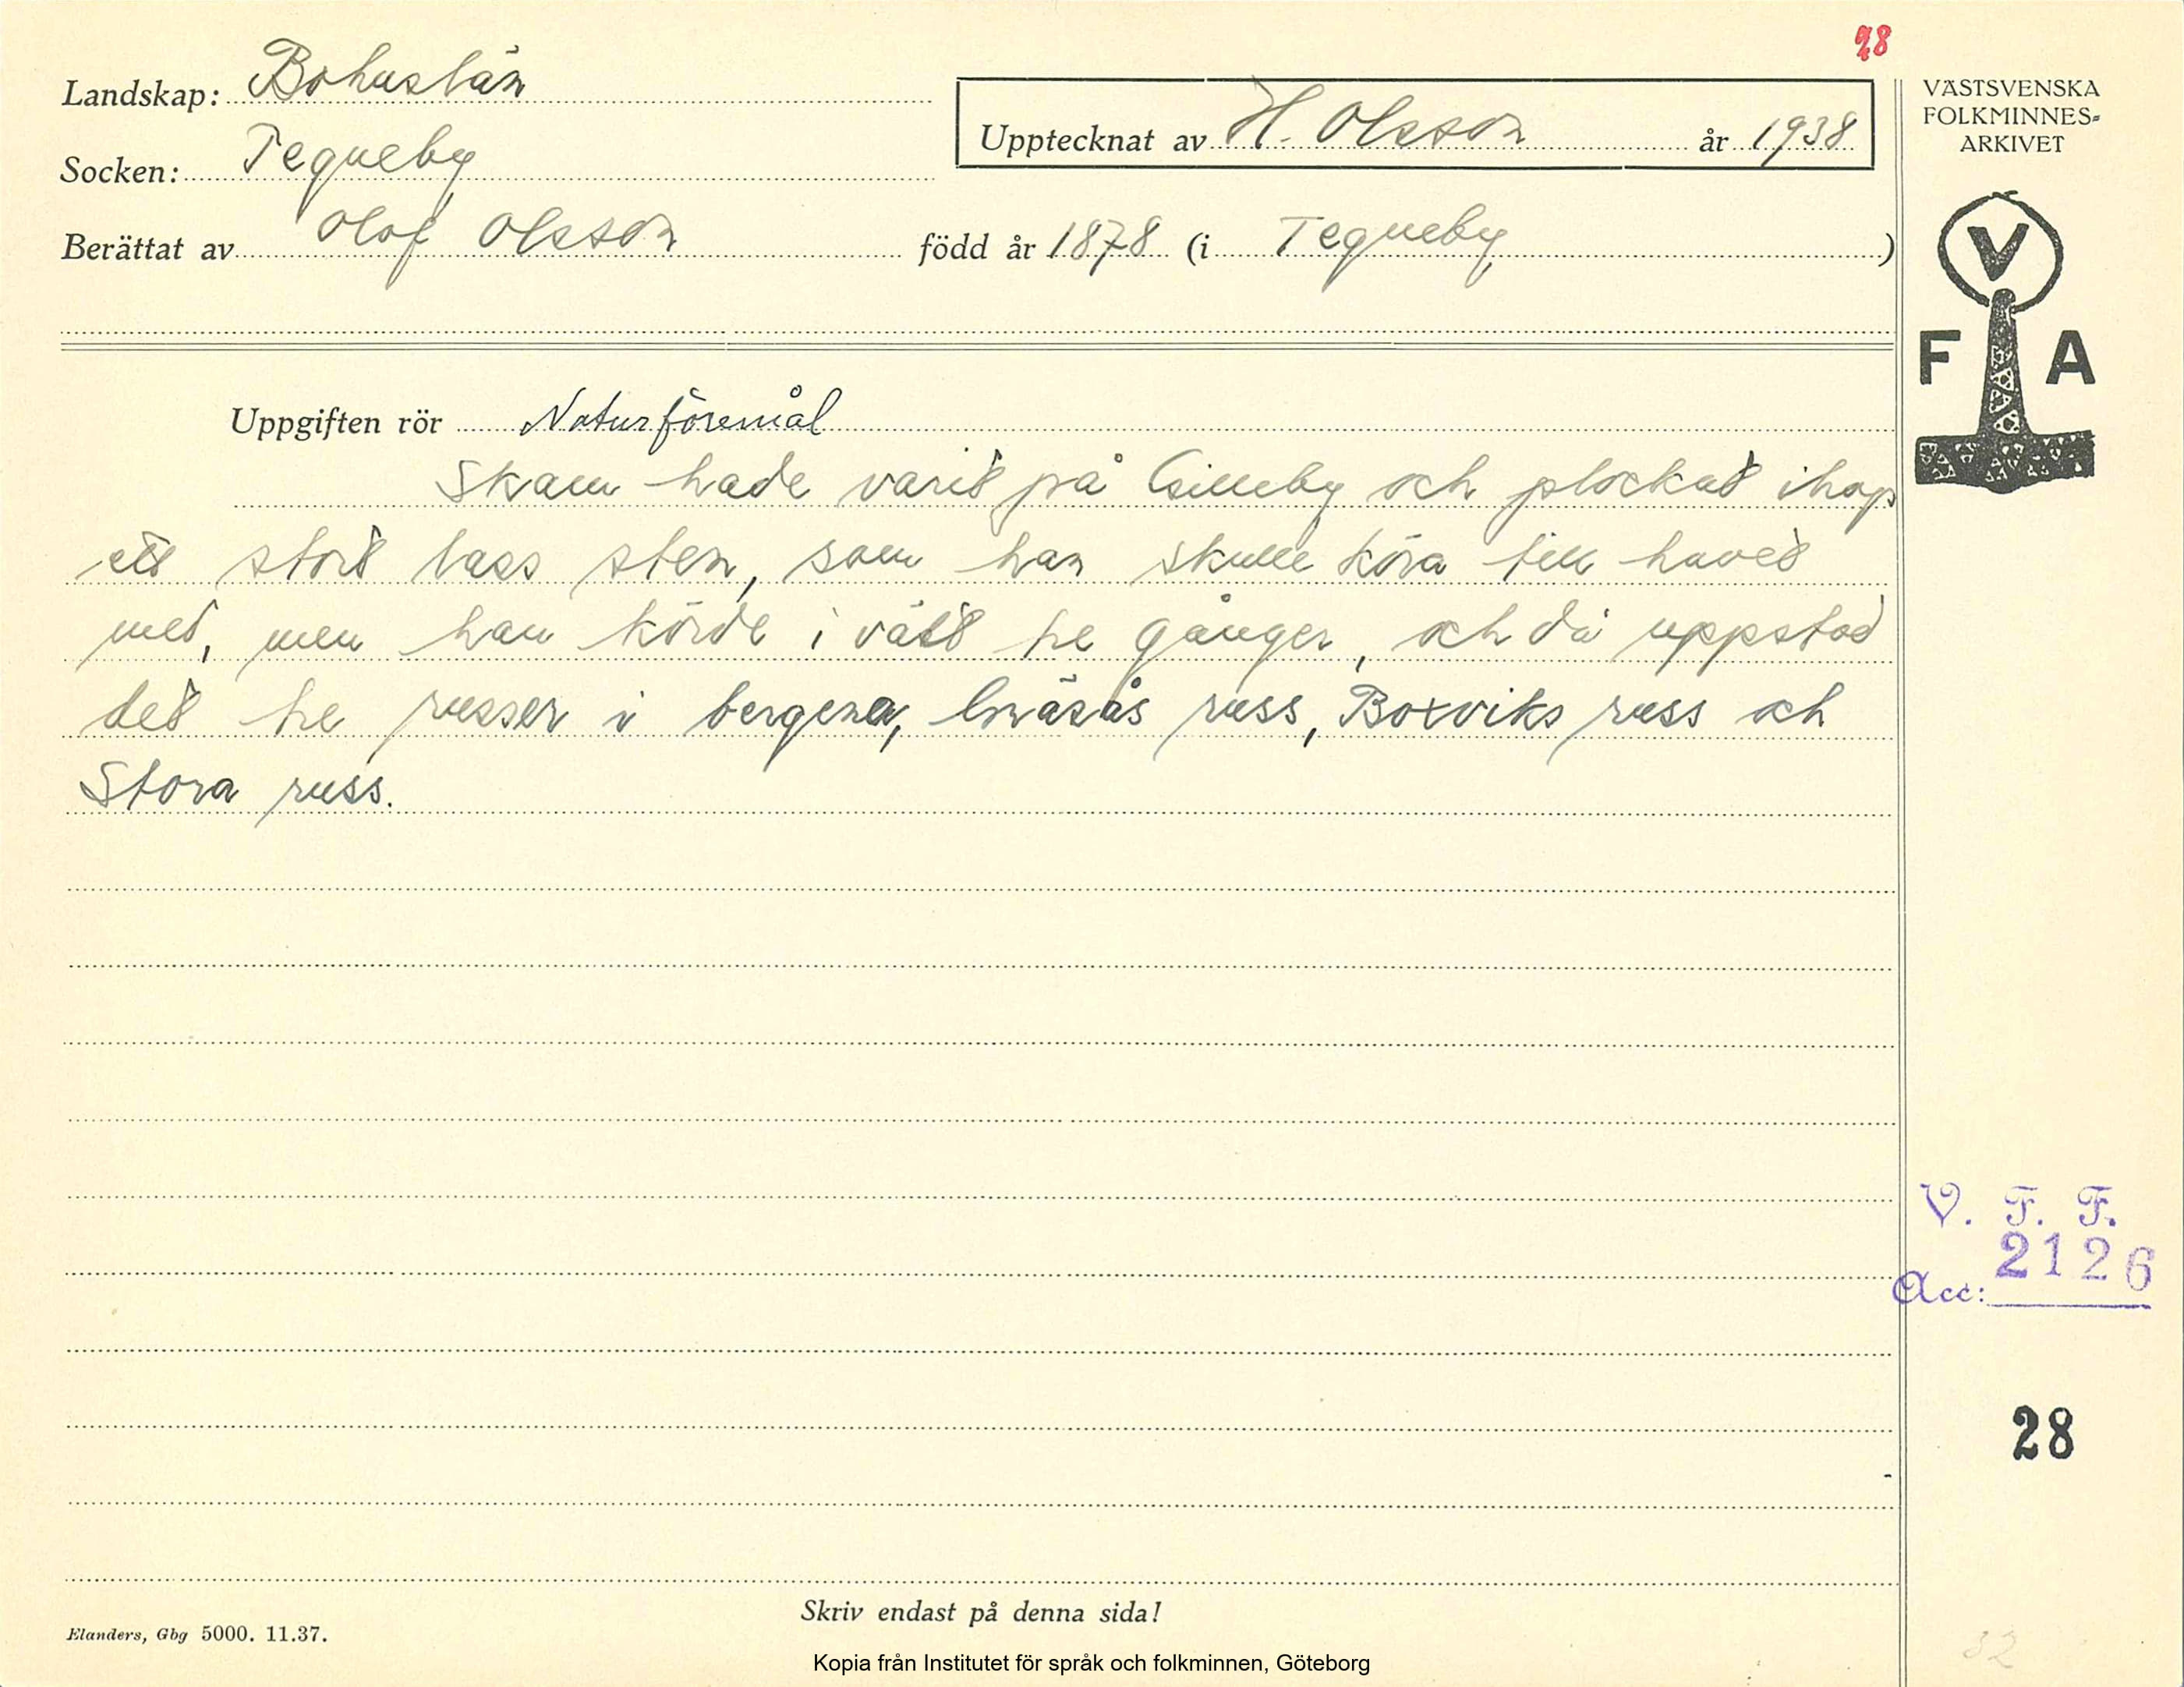 28
Landskap: Bohuslän
Upptecknat av H. Olsson år 1938
VÄSTSVENSKA
FOLKMINNES-
ARKIVET
Socken: Tegneby
Berättat av Olof Olsson född år 1878 (i Tegneby)
V
F A
Uppgiften rör Naturföremål
Skam hade varit på Gilleby och plockat ihop
ett stort lass sten, som han skulle köra till havet
med, men han körde i väll tre gånger, och då uppstod
det tre russer i bergena, russ, Boxviks russ och
Stora russ.
V. F. F.
Acc: 2126
28
Skriv endast på denna sida!
Elanders, Gbg 5000. 11.37.
32
Kopia från Institutet för språk och folkminnen, Göteborg